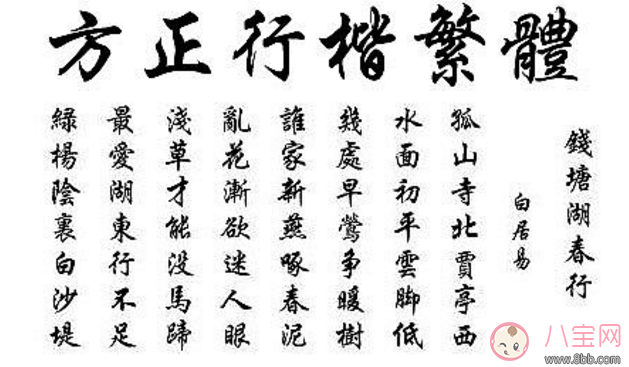 方正行楷繁體
錢塘湖春行
白居易
孤山寺北賈亭西
水面初平雲脚低
幾處早鶯争暖樹
誰家新燕啄春泥
亂花漸欲迷人眼
淺草才能没馬蹄
最愛湖東行不足
綠楊陰裏白沙堤
八宝网
www.8bb.com